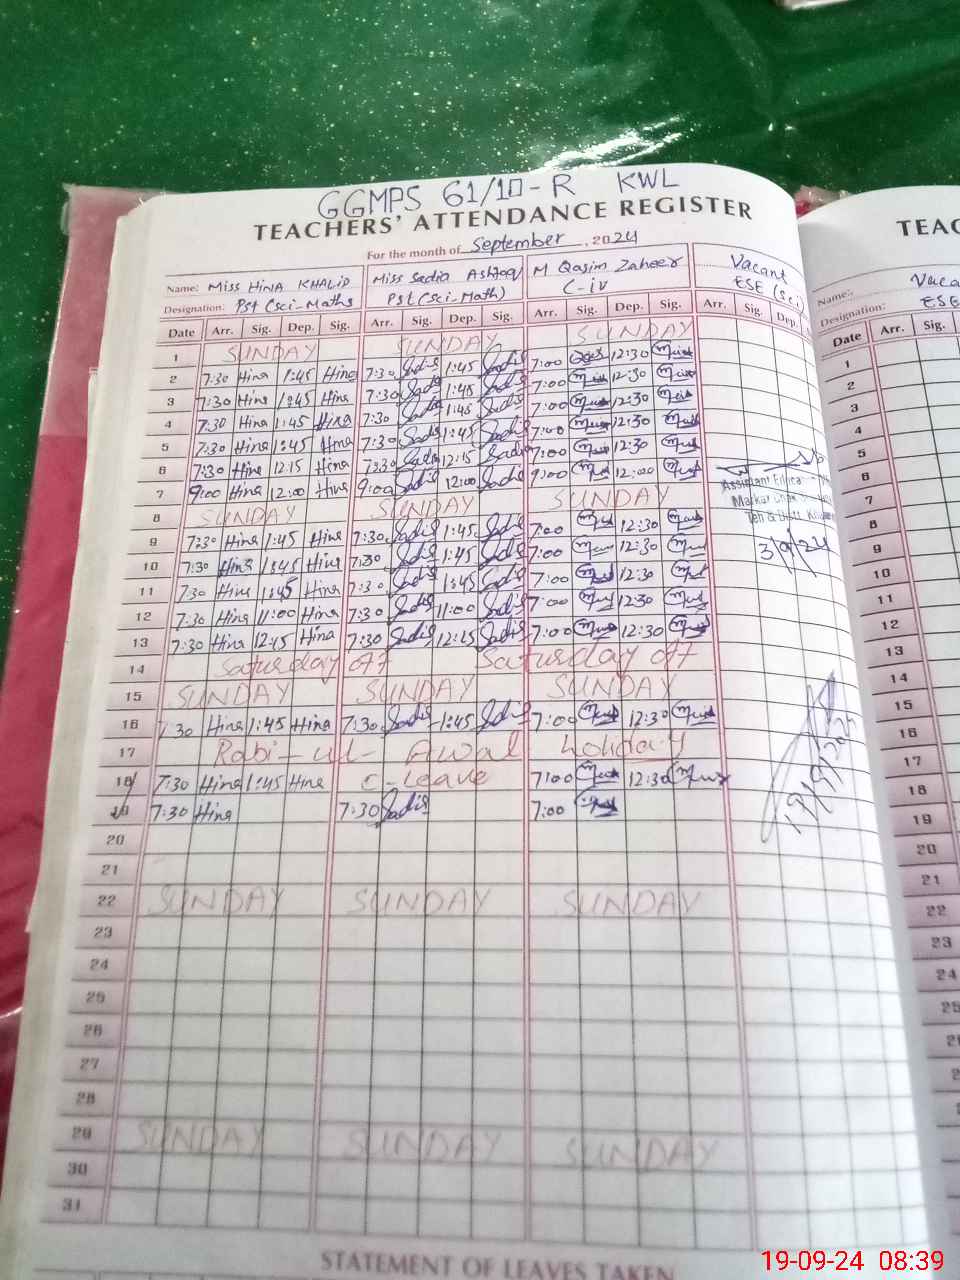 GGMPS 61/10-R KWL
TEACHERS' ATTENDANCE REGISTER
For the month of September, 2024
Name: Miss HINA KHALID Miss Sadia Ashfaq M Qasim Zaheer Vacant
Designation: PST (Sci-Maths) PST (Sci-Math) C-IV ESE (Sci)
Date Arr. Sig. Dep. Sig. Arr. Sig. Dep. Sig. Arr. Sig. Dep. Sig. Arr. Sig. Dep.
1 SUNDAY SUNDAY SUNDAY
2 7:30 Hina 1:45 Hina 7:30 Sadia 1:45 Sadia 7:00 12:30
3 7:30 Hina 1:45 Hina 7:30 Sadia 1:45 Sadia 7:00 12:30
4 7:30 Hina 1:45 Hina 7:30 Sadia 1:45 Sadia 7:00 12:30
5 7:30 Hina 1:45 Hina 7:30 Sadia 1:45 Sadia 7:00 12:30
6 7:30 Hina 12:15 Hina 7:30 Sadia 12:15 Sadia 7:00 12:30
7 9:00 Hina 12:00 Hina 9:00 Sadia 12:00 Sadia 9:00 12:00
8 SUNDAY SUNDAY SUNDAY
9 7:30 Hina 1:45 Hina 7:30 Sadia 1:45 Sadia 7:00 12:30
10 7:30 Hina 1:45 Hina 7:30 Sadia 1:45 Sadia 7:00 12:30
11 7:30 Hina 1:45 Hina 7:30 Sadia 1:45 Sadia 7:00 12:30
12 7:30 Hina 11:00 Hina 7:30 Sadia 11:00 Sadia 7:00 12:30
13 7:30 Hina 12:15 Hina 7:30 Sadia 12:15 Sadia 7:00 12:30
14 Saturday off Saturday off
15 SUNDAY SUNDAY SUNDAY
16 7:30 Hina 1:45 Hina 7:30 Sadia 1:45 Sadia 7:00 12:30
17 Rabi-ul-Awal holiday
18 7:30 Hina 1:45 Hina C-Leave 7:00 12:30
19 7:30 Hina 7:30 Sadia 7:00
20
21
22 SUNDAY SUNDAY SUNDAY
23
24
25
26
27
28
29 SUNDAY SUNDAY SUNDAY
30
31
STATEMENT OF LEAVES TAKEN
Assistant
Markaz
Teh & Distt.
3/9/24
19/9/2024
TEAC
Name: Vaca
Designation: ESE
Date Arr. Sig.
1
2
3
4
5
6
7
8
9
10
11
12
13
14
15
16
17
18
19
20
21
22
23
24
25
19-09-24 08:39